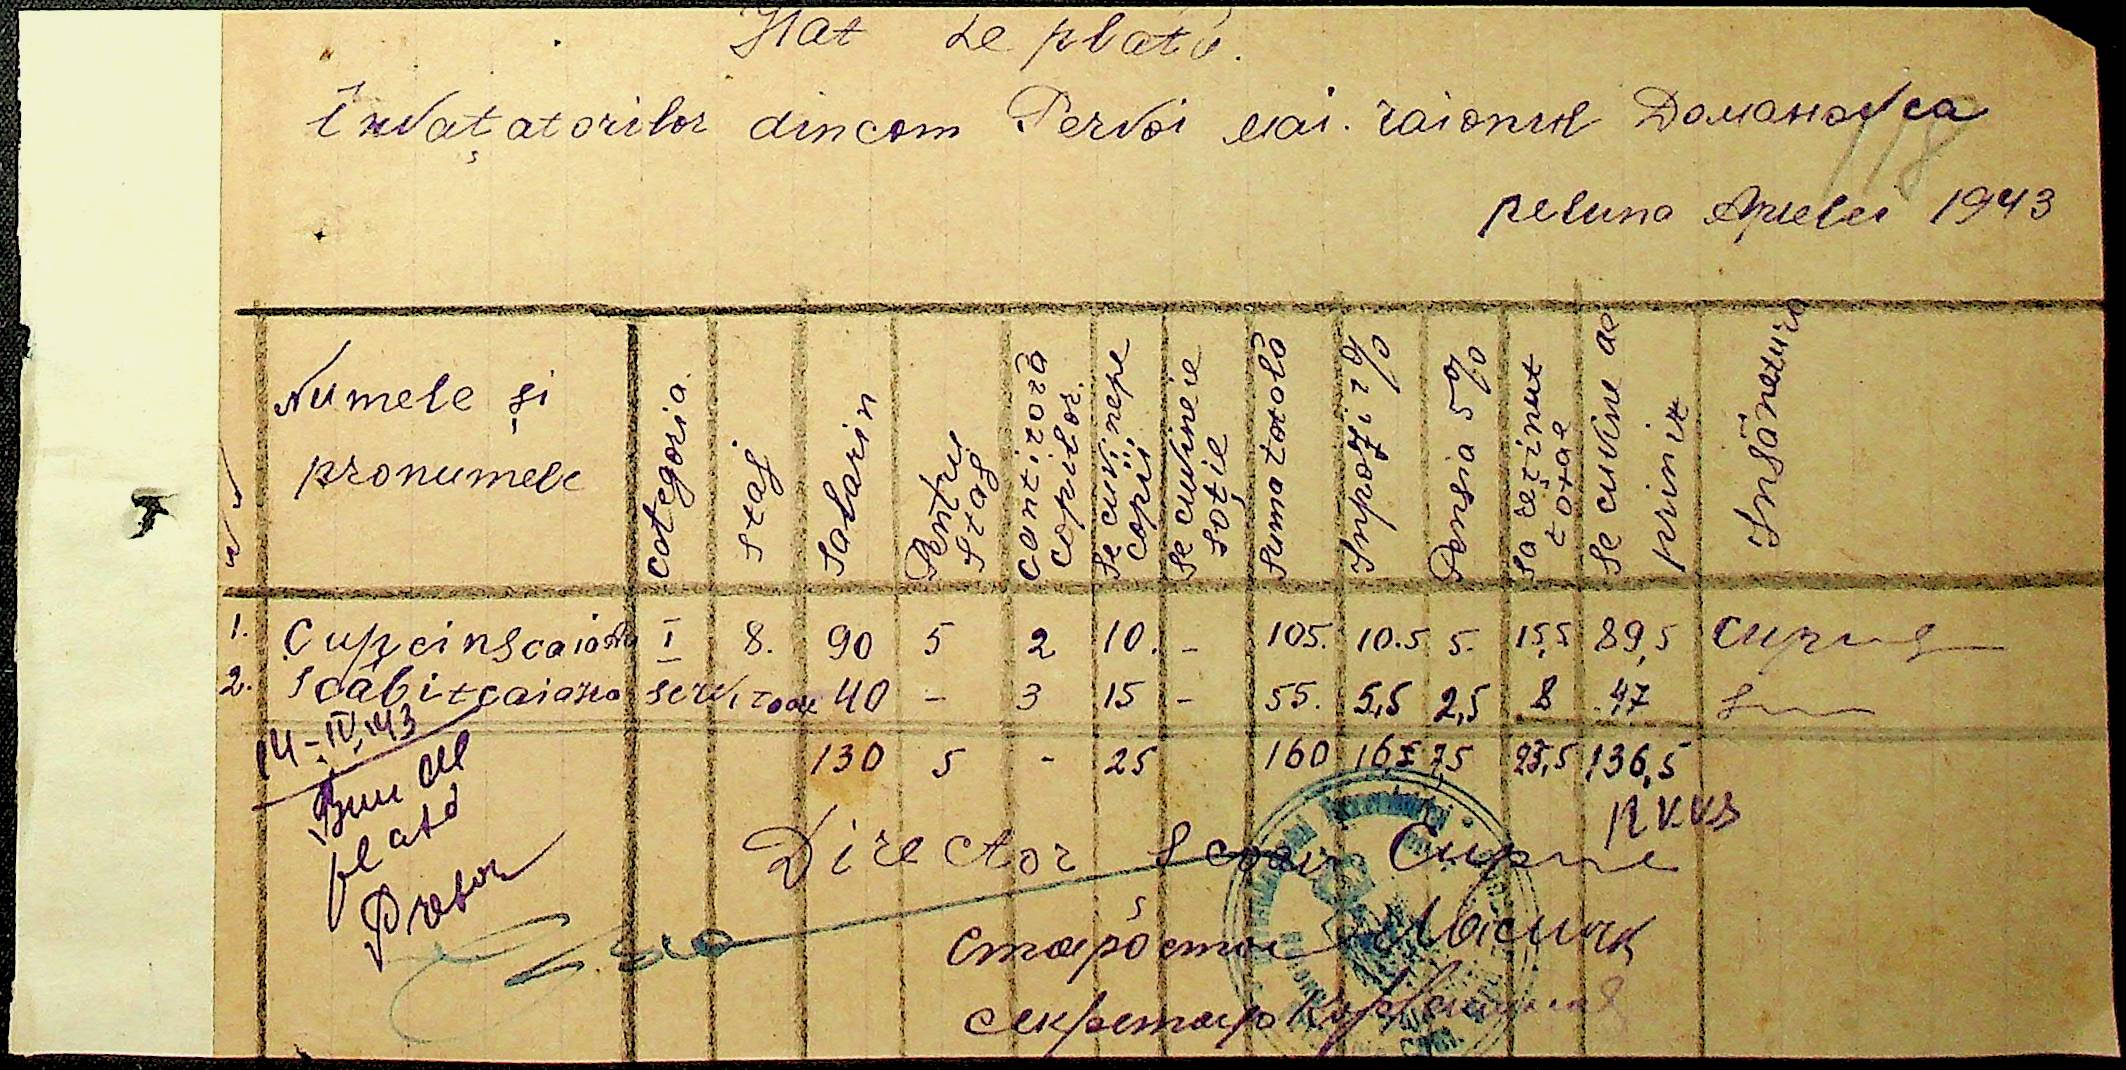 Stat de plată.
Învățatorilor din com Pervoi mai. raionul Домановca
118
pe luna Aprelei 1943
Numele și pronumele
categoria.
staj
Salariu
Pentru staj
Cantitatea copiilor.
Se cuvine pe copii
Se cuvine pe soție
Suma totala
Impozit 12%
Pensia 5%
Sa reținut total
Se cuvine de primit
Însămnetura
1. Cupcinscaiana I 8. 90 5 2 10. - 105. 10.5 5. 15,5 89,5
2. Scabitcaiana servitoare 40 - 3 15 - 55. 5,5 2,5 8 47
130 5 - 25 160 16,5 7,5 23,5 136,5
14-IV.43
Bun de
plată
Pretor
RKKS
Director Scoalei
староста
секретарь